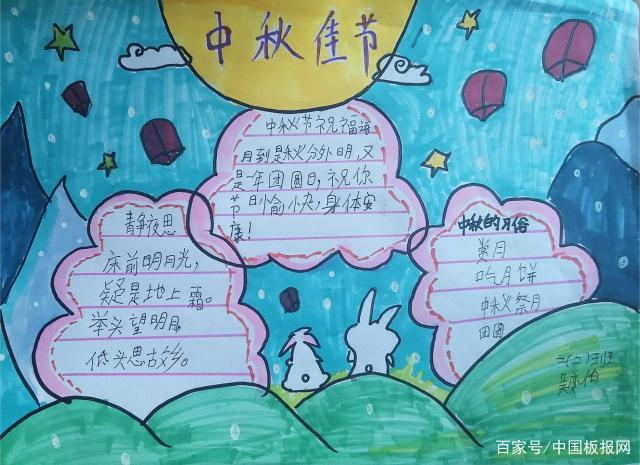 中秋佳节
中秋节祝福语
月到是秋分外明,又
是一年团圆日,祝你
节日愉快,身体安
康!
静夜思
床前明月光,
疑是地上霜。
举头望明月,
低头思故乡。
中秋的习俗
赏月
吃月饼
中秋祭月
团圆
二(二)班
百家号/中国板报网